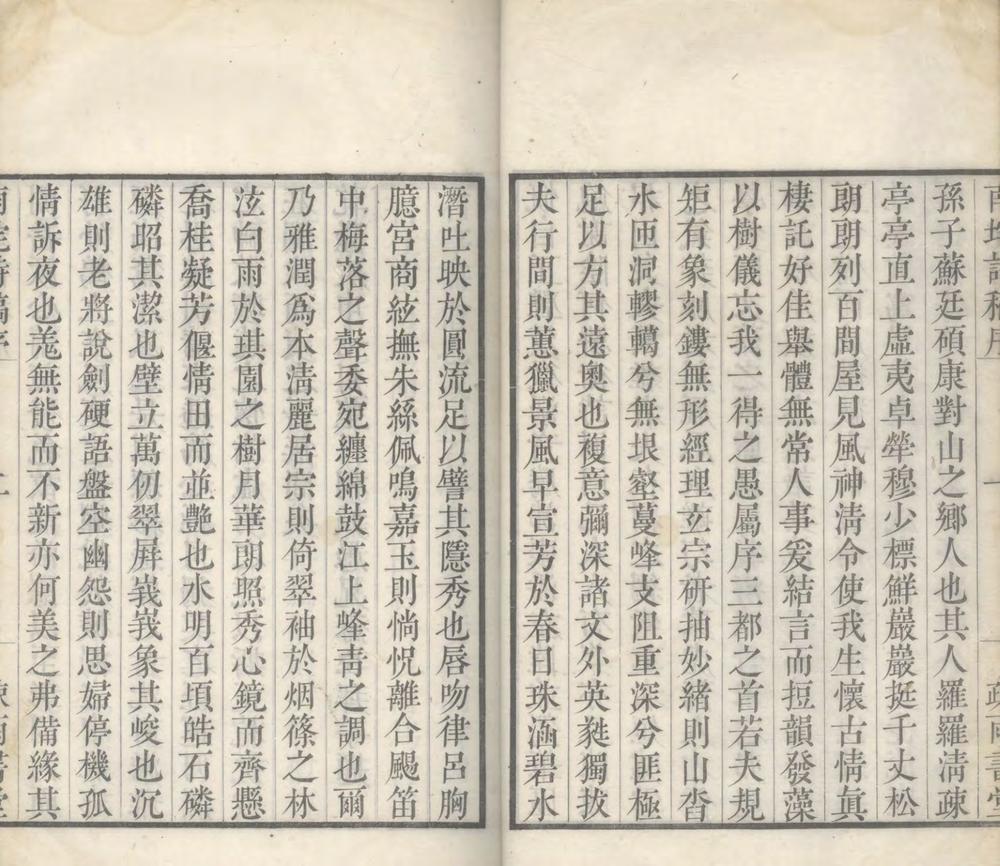 孫子蘇廷碩康對山之鄉人也其人羅羅淸疎
亭亭直上虛夷卓犖穆少標鮮巖巖挺千丈松
朗朗列百間屋見風神淸令使我生懷古情眞
棲託好佳舉體無常人事爰結言而拉韻發藻
以樹儀忘我一得之愚屬序三都之首若夫規
矩有象刻鏤無形經理立宗硏抽妙緒則山沓
水匝洞轇轕兮無垠壑蔓峰支阻重深兮匪極
足以方其遠奧也複意彌深諸文外英㽔獨拔
夫行間則蕙獵景風早宣芳於春日珠涵碧水
潛吐映於圓流足以譬其隱秀也唇吻律呂胸
臆宮商絃撫朱絲佩鳴嘉玉則惝怳離合颺笛
中梅落之聲委宛纏綿鼓江上峰靑之調也爾
乃雅潤爲本淸麗居宗則倚翠袖於烟篠之林
泫白雨於琪園之樹月華朗照秀心鏡而齊懸
喬桂凝芳偃情田而並艷也水明百頃皓石磷
磷昭其潔也壁立萬仞翠屛峩峩象其峻也沉
雄則老將說劍硬語盤空幽怨則思婦停機孤
情訴夜也羗無能而不新亦何美之弗備緣其